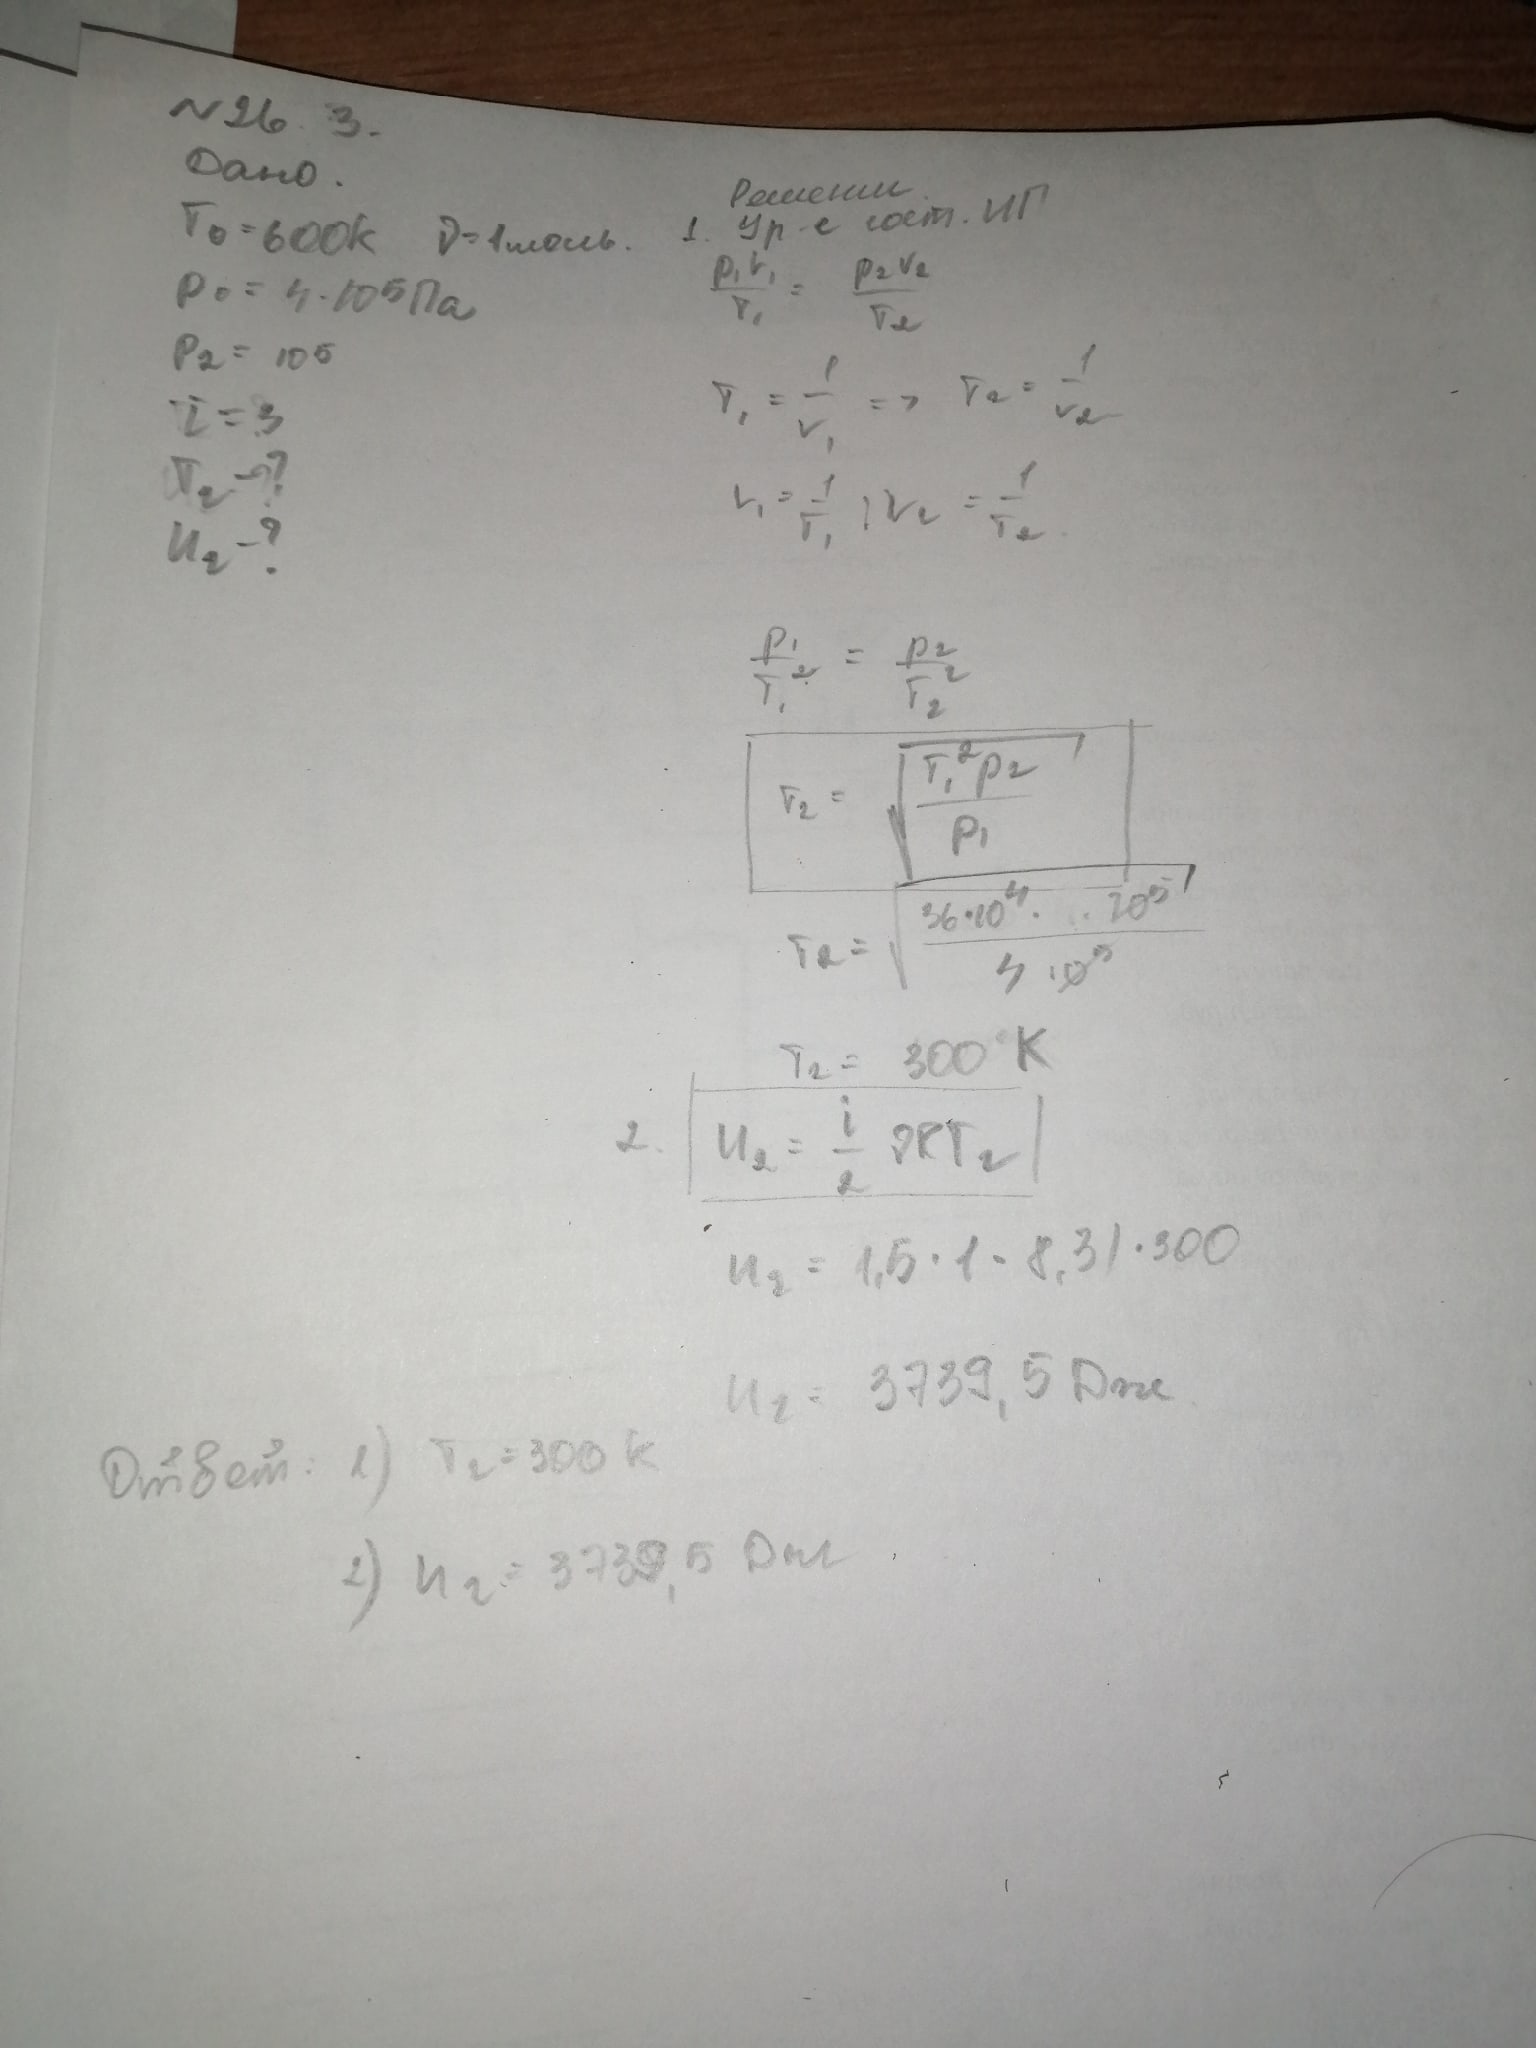 N26.3.
Дано.
T₀=600K ν=1моль.
p₀=4·10⁵Па
p₂=10⁵
i=3
T₂-?
U₂-?
Решении.
1. Ур-е сост. ИГ
p₁V₁/T₁ = p₂V₂/T₂
T₁ = 1/V₁ => T₂ = 1/V₂
V₁ = 1/T₁ ; V₂ = 1/T₂.
p₁/T₁² = p₂/T₂²
T₂ = √(T₁²p₂/p₁)
T₂ = √(36·10⁴·10⁵/4·10⁵)
T₂ = 300°K
2. U₂ = i/2 νRT₂
U₂ = 1,5·1·8,31·300
U₂ = 3739,5 Дж.
Ответ: 1) T₂=300K
2) U₂=3739,5 Дж